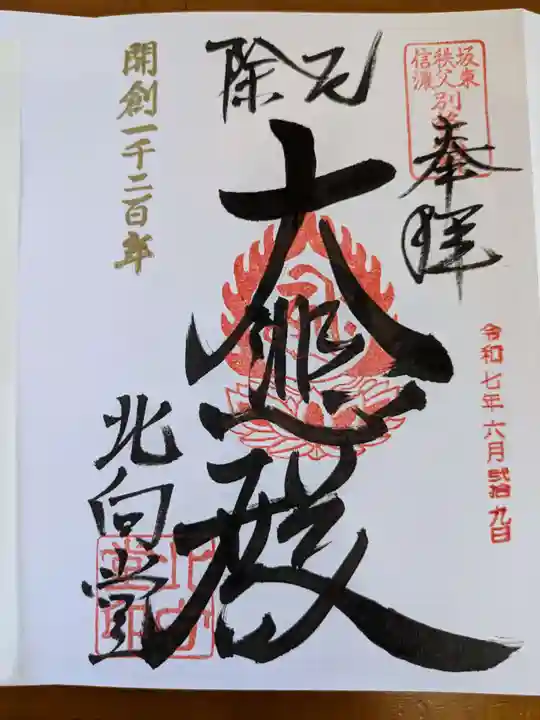 坂東
秩父
信濃
別格
奉拝
令和七年六月弐拾九日
除厄
大悲殿
北向堂
開創一千二百年